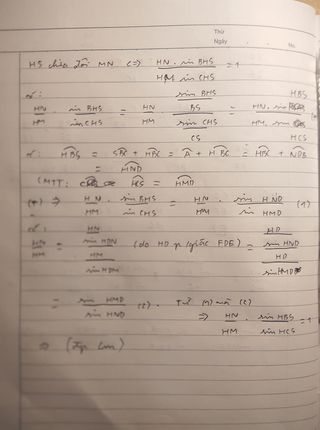 Thứ
Ngày No.
HS chia đôi MN <=> HN . sin BHS / HM . sin CHS = 1
HN / HM . sin BHS / sin CHS = HN / HM . (sin BHS / BS) / (sin CHS / CS) = HN . sin HBS / HM . sin HCS (*)
HBS = SBC + HBC = A + HBC = HBC + NDB
= HND
CMTT: HCS = HMD
(*) => HN / HM . sin BHS / sin CHS = HN / HM . sin HND / sin HMD (1)
HN / HM = (HN / sin HDN) / (HM / sin HDM) (do HD p/giác FDE) = (HD / sin HND) / (HD / sin HMD)
= sin HMD / sin HND (2). Từ (1) và (2)
=> HN / HM . sin HBS / sin HCS = 1
=> (đpcm)